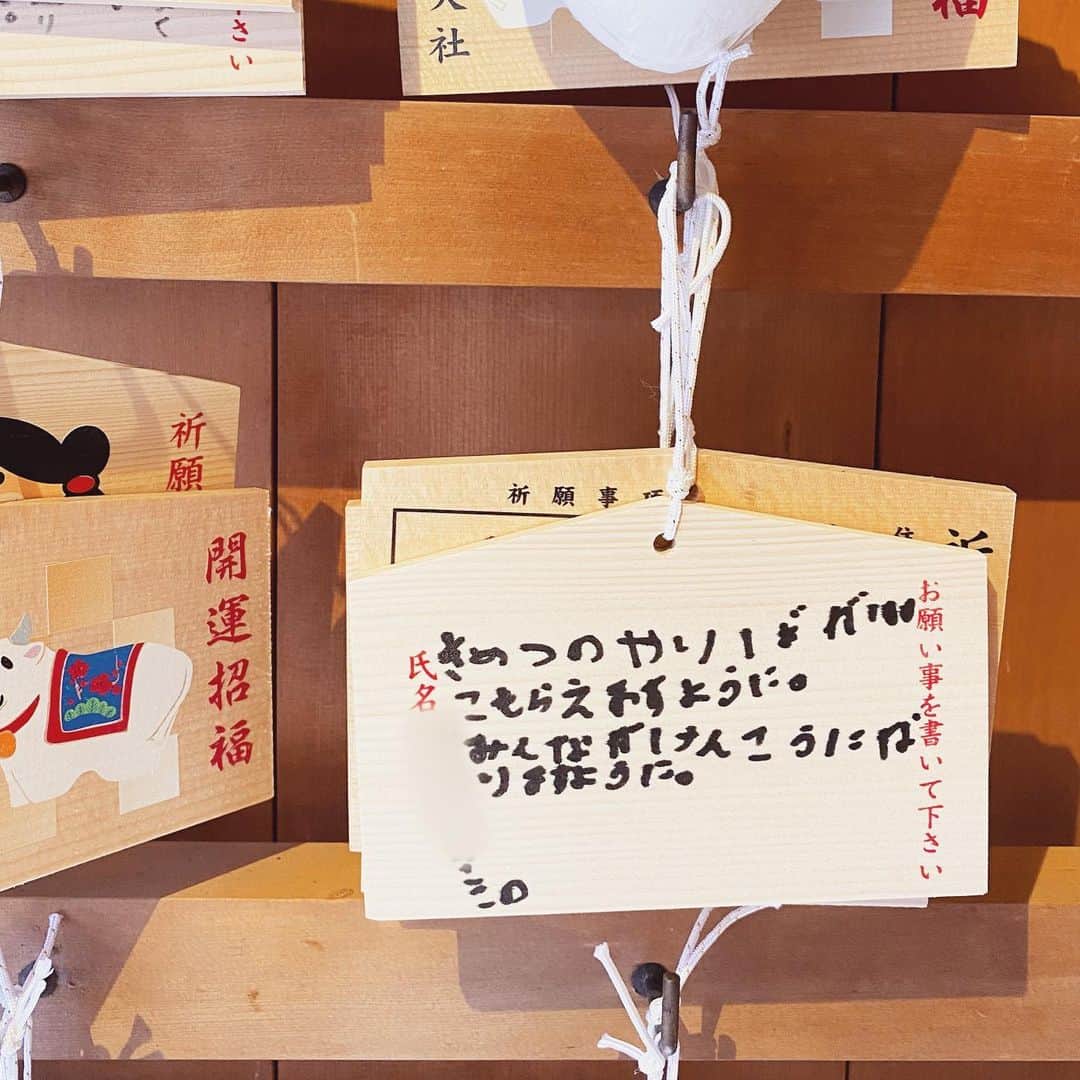 さい
社
福
祈願
開運招福
祈願事項
お願い事を書いて下さい
きめつのやりーずが100
こもらえますように。
みんながけんこうにな
りますように。
氏名